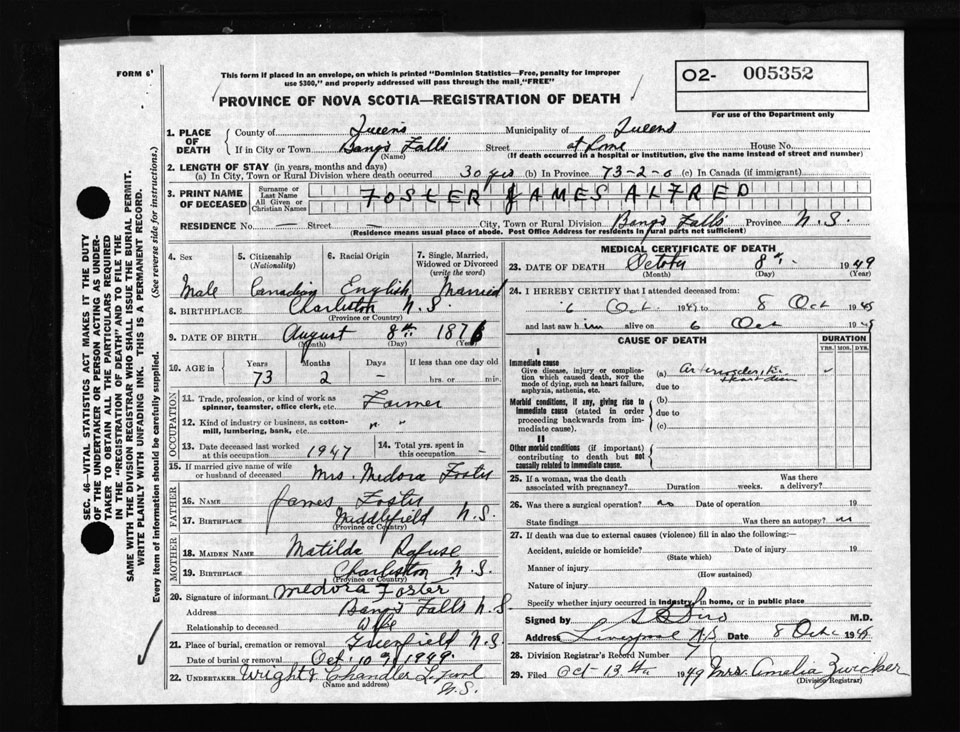 FORM 6
This form if placed in an envelope, on which is printed "Dominion Statistics—Free, penalty for improper
use $300," and properly addressed will pass through the mail, "FREE"
O2- 005352
For use of the Department only
PROVINCE OF NOVA SCOTIA—REGISTRATION OF DEATH
SEC. 46—VITAL STATISTICS ACT MAKES IT THE DUTY
OF THE UNDERTAKER OR PERSON ACTING AS UNDER-
TAKER TO OBTAIN ALL THE PARTICULARS REQUIRED
IN THE "REGISTRATION OF DEATH" AND TO FILE THE
SAME WITH THE DIVISION REGISTRAR WHO SHALL ISSUE THE BURIAL PERMIT.
WRITE PLAINLY WITH UNFADING INK. THIS IS A PERMANENT RECORD.
Every item of information should be carefully supplied. (See reverse side for instructions.)
1. PLACE OF DEATH
County of Queens Municipality of Queens
If in City or Town Bangs Falls Street at home House No.
(Name) (If death occurred in a hospital or institution, give the name instead of street and number)
2. LENGTH OF STAY (in years, months and days)
(a) In City, Town or Rural Division where death occurred 30 yrs (b) In Province 73-2-0 (c) In Canada (if immigrant)
3. PRINT NAME OF DECEASED
Surname or Last Name
All Given or Christian Names
FOSTER JAMES ALFRED
RESIDENCE No. — Street — City, Town or Rural Division Bangs Falls Province N.S.
(Residence means usual place of abode. Post Office Address for residents in rural parts not sufficient)
4. Sex 5. Citizenship (Nationality) 6. Racial Origin 7. Single, Married, Widowed or Divorced (write the word)
Male Canadian English Married
8. BIRTHPLACE Charleston N.S.
(Province or Country)
9. DATE OF BIRTH August 8th 1876
(Month) (Day) (Year)
10. AGE in Years Months Days If less than one day old
73 2 — hrs. or min.
OCCUPATION
11. Trade, profession, or kind of work as spinner, teamster, office clerk, etc. Farmer
12. Kind of industry or business, as cotton-mill, lumbering, bank, etc. " "
13. Date deceased last worked at this occupation 1947 14. Total yrs. spent in this occupation —
15. If married give name of wife or husband of deceased Mrs. Medora Foster
FATHER
16. NAME James Foster
17. BIRTHPLACE Middlefield N.S.
(Province or Country)
MOTHER
18. MAIDEN NAME Matilda Rafuse
19. BIRTHPLACE Charleston N.S.
(Province or Country)
20. Signature of informant Medora Foster
Address Bangs Falls N.S.
Relationship to deceased Wife
21. Place of burial, cremation or removal Greenfield N.S.
Date of burial or removal Oct. 10 1949
22. UNDERTAKER Wright & Chandler L.pool
(Name and address) N.S.
MEDICAL CERTIFICATE OF DEATH
23. DATE OF DEATH October 8th 1949
(Month) (Day) (Year)
24. I HEREBY CERTIFY that I attended deceased from:
6 Oct 1949 to 8 Oct 1949
and last saw him alive on 6 Oct 1949
CAUSE OF DEATH DURATION
YRS. MOS. DYS.
I
Immediate cause
Give disease, injury or complication which caused death, not the mode of dying, such as heart failure, asphyxia, asthenia, etc.
(a)
due to
Morbid conditions, if any, giving rise to immediate cause (stated in order proceeding backwards from immediate cause).
(b)
due to
(c)
II
Other morbid conditions (if important) contributing to death but not causally related to immediate cause.
25. If a woman, was the death associated with pregnancy? Duration weeks. Was there a delivery?
26. Was there a surgical operation? no Date of operation 19
State findings Was there an autopsy? no
27. If death was due to external causes (violence) fill in also the following:—
Accident, suicide or homicide? Date of injury 19
(State which)
Manner of injury
(How sustained)
Nature of injury
Specify whether injury occurred in industry, in home, or in public place
Signed by M.D.
Address Liverpool N.S. Date 8 Oct 1949
28. Division Registrar's Record Number 7
29. Filed Oct- 13th 1949 Mrs. Amelia Zwicker
(Division Registrar)